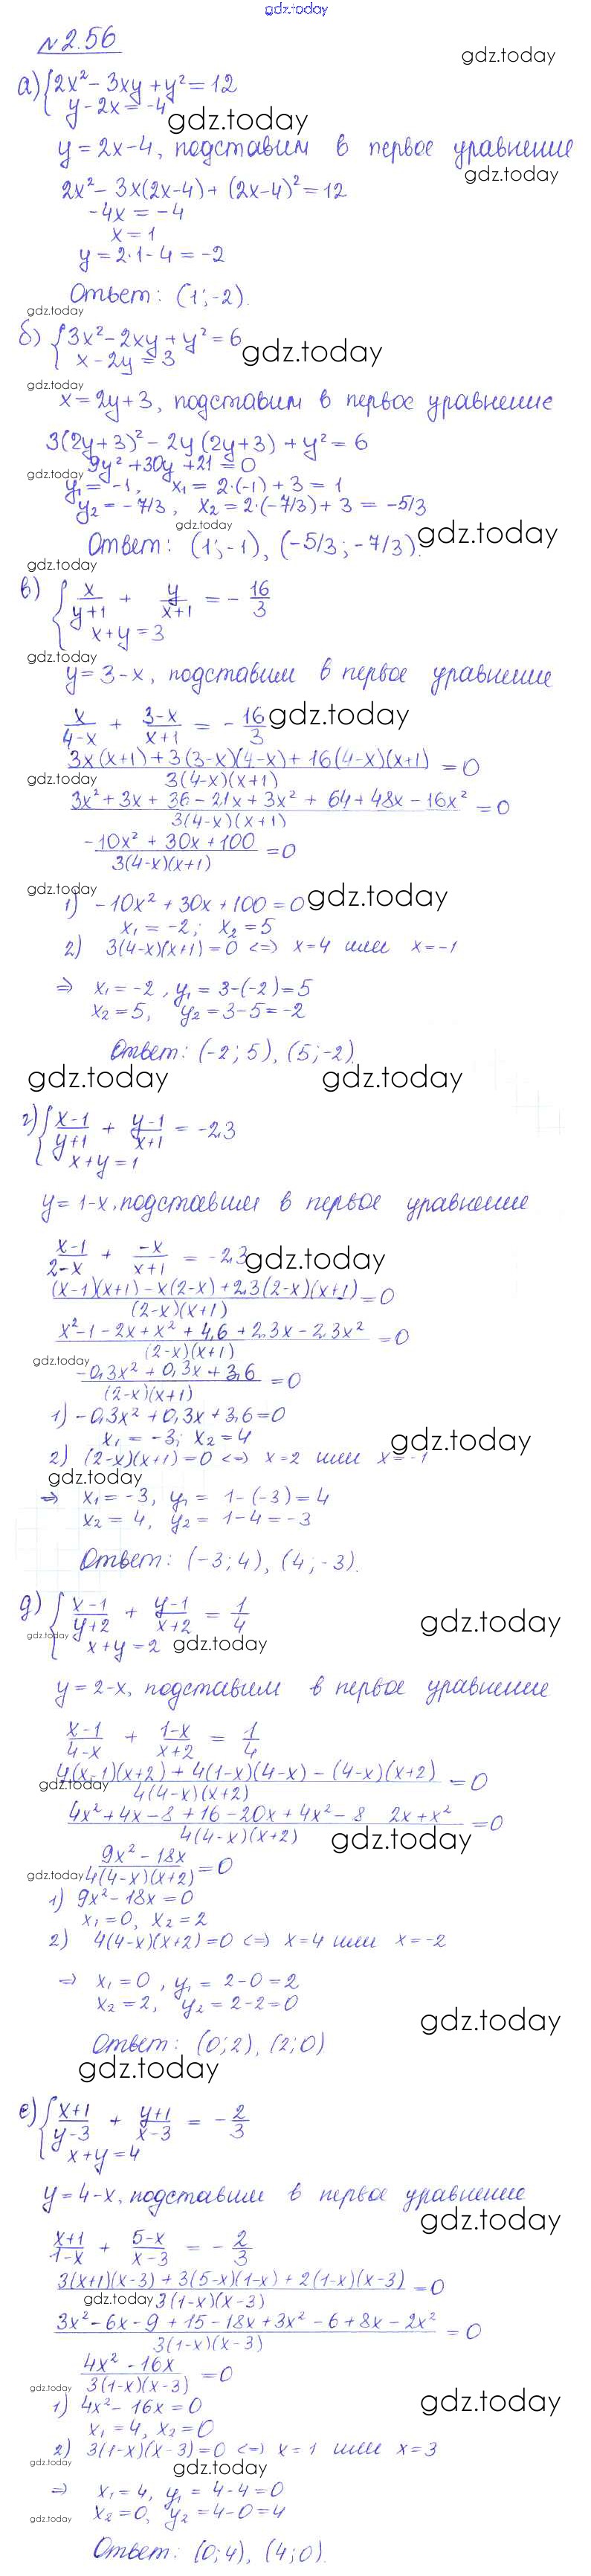 gdz.today
№2.56
gdz.today
а) {2x² - 3xy + y² = 12
y - 2x = -4
gdz.today
y = 2x-4, подставим в первое уравнение
gdz.today
2x² - 3x(2x-4) + (2x-4)² = 12
-4x = -4
x = 1
y = 2·1 - 4 = -2
Ответ: (1; -2).
gdz.today
б) {3x² - 2xy + y² = 6
x - 2y = 3
gdz.today
gdz.today
x = 2y+3, подставим в первое уравнение
3(2y+3)² - 2y(2y+3) + y² = 6
9y² + 30y + 21 = 0
gdz.today
y₁ = -1, x₁ = 2·(-1) + 3 = 1
y₂ = -7/3, x₂ = 2·(-7/3) + 3 = -5/3
gdz.today
gdz.today
Ответ: (1; -1), (-5/3; -7/3).
gdz.today
в) {x/(y+1) + y/(x+1) = -16/3
x+y = 3
gdz.today
y = 3-x, подставим в первое уравнение
x/(4-x) + (3-x)/(x+1) = -16/3
gdz.today
(3x(x+1) + 3(3-x)(4-x) + 16(4-x)(x+1))/(3(4-x)(x+1)) = 0
gdz.today
(3x² + 3x + 36 - 21x + 3x² + 64 + 48x - 16x²)/(3(4-x)(x+1)) = 0
(-10x² + 30x + 100)/(3(4-x)(x+1)) = 0
gdz.today
gdz.today
1) -10x² + 30x + 100 = 0
x₁ = -2; x₂ = 5
2) 3(4-x)(x+1) = 0 <=> x = 4 или x = -1
=> x₁ = -2, y₁ = 3-(-2) = 5
x₂ = 5, y₂ = 3-5 = -2
Ответ: (-2; 5), (5; -2).
gdz.today
gdz.today
г) {(x-1)/(y+1) + (y-1)/(x+1) = -2,3
x+y = 1
y = 1-x, подставим в первое уравнение
(x-1)/(2-x) + (-x)/(x+1) = -2,3
gdz.today
((x-1)(x+1) - x(2-x) + 2,3(2-x)(x+1))/((2-x)(x+1)) = 0
(x² - 1 - 2x + x² + 4,6 + 2,3x - 2,3x²)/((2-x)(x+1)) = 0
gdz.today
(-0,3x² + 0,3x + 3,6)/((2-x)(x+1)) = 0
1) -0,3x² + 0,3x + 3,6 = 0
x₁ = -3; x₂ = 4
gdz.today
2) (2-x)(x+1) = 0 <=> x = 2 или x = -1
gdz.today
=> x₁ = -3, y₁ = 1-(-3) = 4
x₂ = 4, y₂ = 1-4 = -3
Ответ: (-3; 4), (4; -3).
д) {(x-1)/(y+2) + (y-1)/(x+2) = 1/4
gdz.today
gdz.today
x+y = 2
gdz.today
y = 2-x, подставим в первое уравнение
(x-1)/(4-x) + (1-x)/(x+2) = 1/4
(4(x-1)(x+2) + 4(1-x)(4-x) - (4-x)(x+2))/(4(4-x)(x+2)) = 0
gdz.today
(4x² + 4x - 8 + 16 - 20x + 4x² - 8 2x + x²)/(4(4-x)(x+2)) = 0
gdz.today
(9x² - 18x)/(4(4-x)(x+2)) = 0
gdz.today
1) 9x² - 18x = 0
x₁ = 0, x₂ = 2
2) 4(4-x)(x+2) = 0 <=> x = 4 или x = -2
=> x₁ = 0, y₁ = 2-0 = 2
x₂ = 2, y₂ = 2-2 = 0
gdz.today
Ответ: (0; 2), (2; 0)
gdz.today
е) {(x+1)/(y-3) + (y+1)/(x-3) = -2/3
x+y = 4
y = 4-x, подставим в первое уравнение
gdz.today
(x+1)/(1-x) + (5-x)/(x-3) = -2/3
(3(x+1)(x-3) + 3(5-x)(1-x) + 2(1-x)(x-3))/(3(1-x)(x-3)) = 0
gdz.today
(3x² - 6x - 9 + 15 - 18x + 3x² - 6 + 8x - 2x²)/(3(1-x)(x-3)) = 0
(4x² - 16x)/(3(1-x)(x-3)) = 0
gdz.today
gdz.today
1) 4x² - 16x = 0
x₁ = 4, x₂ = 0
2) 3(1-x)(x-3) = 0 <=> x = 1 или x = 3
gdz.today
gdz.today
=> x₁ = 4, y₁ = 4-4 = 0
x₂ = 0, y₂ = 4-0 = 4
gdz.today
Ответ: (0; 4), (4; 0).